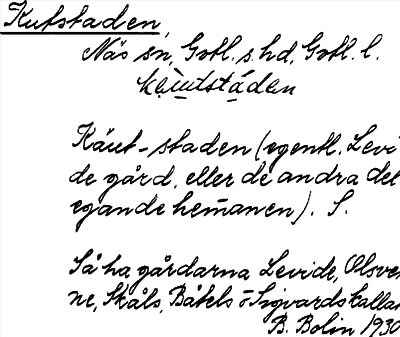 Kutstaden,
Näs sn, Gotl. s. hd, Gotl. l.
Käut-staden (egentl. Levi
de gård, eller de andra del
egande hem̄anen). S.
Så ha gårdarna Levide, Olsver
ne, Skåls, Båtels o Sigvards kallar
B. Bolin 1930